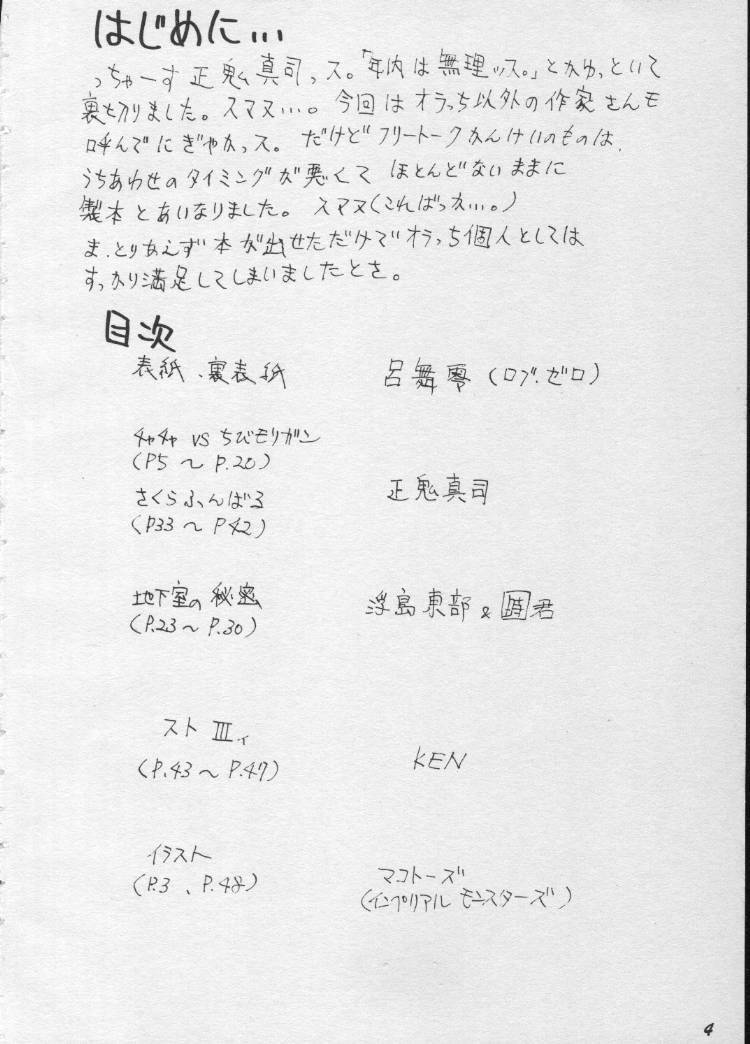 はじめに…
っちゃーす 正鬼真司っス。「年内は無理ッス。」とかゆっといて
裏を切りました。スマヌ…。今回はオラっち以外の作家さんモ
呼んでにぎやかっス。だけどフリートークかんけいのものは、
うちあわせのタイミングが悪くて ほとんどないままに
製本とあいなりました。スマヌ(こればっかい…。)
ま、とりあえず本が出せただけでオラっち個人としては
すっかり満足してしまいましたとさ。
目次
表紙、裏表紙 呂舞零(ロブ・ゼロ)
チャチャ VS ちびモリガン
(P5 〜 P.20)
さくらふんばる 正鬼真司
(P33 〜 P42)
地下室の秘密 浮島東部 & 君
(P.23 〜 P.30)
スト III
(P.43 〜 P.47) KEN
イラスト
(P.3 、P.48) マコトーズ
(インペリアル モンスターズ)
4